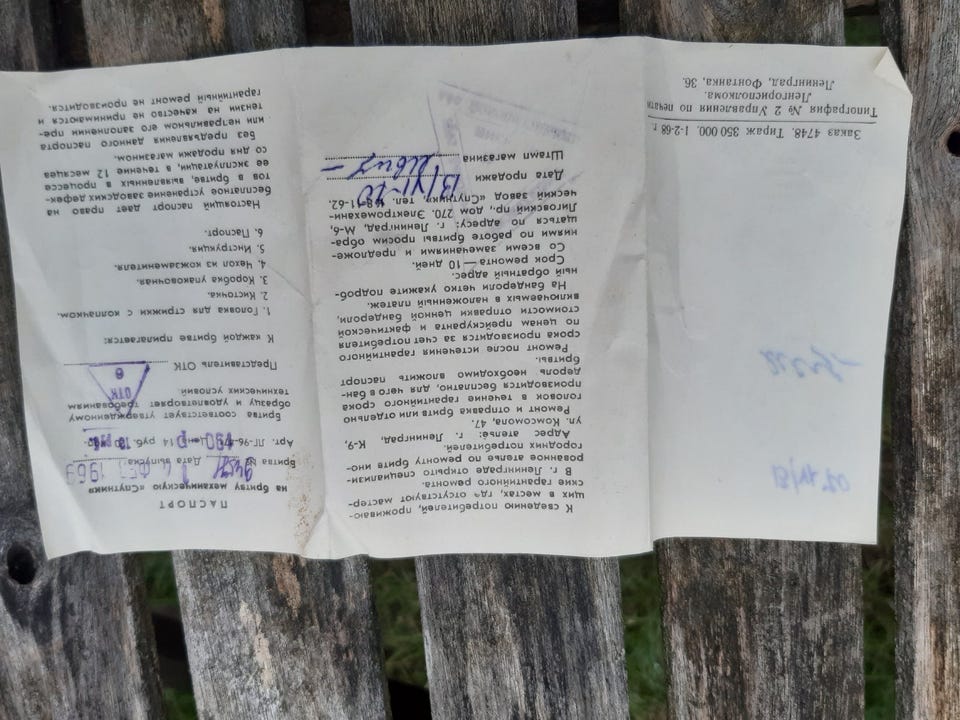 ПАСПОРТ
на бритву механическую «Спутник»
Бритва № Дата выпуска 1969
Арт. ЛГ-96-490 Ц—р 14 руб. 00
Бритва соответствует утвержденному
образцу и удовлетворяет требованиям
технических условий.
Представитель ОТК
ОТК
6
К каждой бритве прилагается:
1. Головка для стрижки с колпачком.
2. Кисточка.
3. Коробка упаковочная.
4. Чехол из кожзаменителя.
5. Инструкция.
6. Паспорт.
Настоящий паспорт дает право на
бесплатное устранение заводских дефек-
тов в бритве, выявленных в процессе
ее эксплуатации, в течение 12 месяцев
со дня продажи магазином.
Без предъявления данного паспорта
или неправильном его заполнении пре-
тензии на качество не принимаются и
гарантийный ремонт не производится.
К сведению потребителей, проживаю-
щих в местах, где отсутствуют мастер-
ские гарантийного ремонта.
В г. Ленинграде открыто специализи-
рованное ателье по ремонту бритв ино-
городних потребителей.
Адрес ателье: г. Ленинград, К-9,
ул. Комсомола, 47.
Ремонт и отправка бритв или отдельно
головок в течение гарантийного срока
производится бесплатно, для чего в бан-
дероль необходимо вложить паспорт
бритвы.
Ремонт после истечения гарантийного
срока производится за счет потребителя
по ценам прейскуранта и фактической
стоимости отправки ценной бандероли,
включаемых в наложенный платеж.
На бандероли четко укажите подроб-
ный обратный адрес.
Срок ремонта — 10 дней.
Со всеми замечаниями и предложе-
ниями по работе бритвы просим обра-
щаться по адресу: г. Ленинград, М-6,
Лиговский пр., дом 270. Электромехани-
ческий завод «Спутник», тел. 98-11-62.
Дата продажи 13/VI-70
Штамп магазина
Заказ 4748. Тираж 350 000. 1-2-68 г.
Типография № 2 Управления по печати
Ленгорисполкома.
Ленинград, Фонтанка, 36.